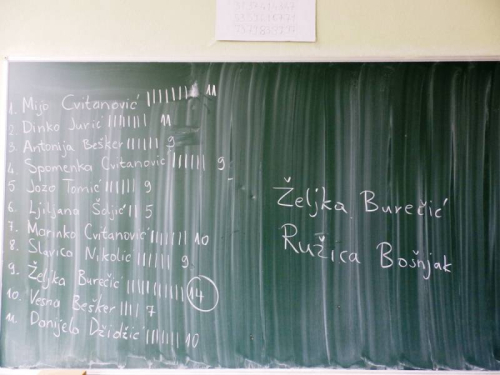 1. Mijo Cvitanović |||||||||| 11
2 Dinko Jurić |||||||| 11
3 Antonija Bešker |||||| 9
4. Spomenka Cvitanović |||||| 9
5 Jozo Tomić |||||| 9
6 Ljiljana Šoljić || 5
7. Marinko Cvitanović ||||||| 10
8. Slavica Nikolić |||||| 9
9. Željka Burečić ||||||||||| 14
10. Vesna Bešker |||| 7
11. Danijela Džidžić ||||||| 10
Željka Burečić
Ružica Bošnjak